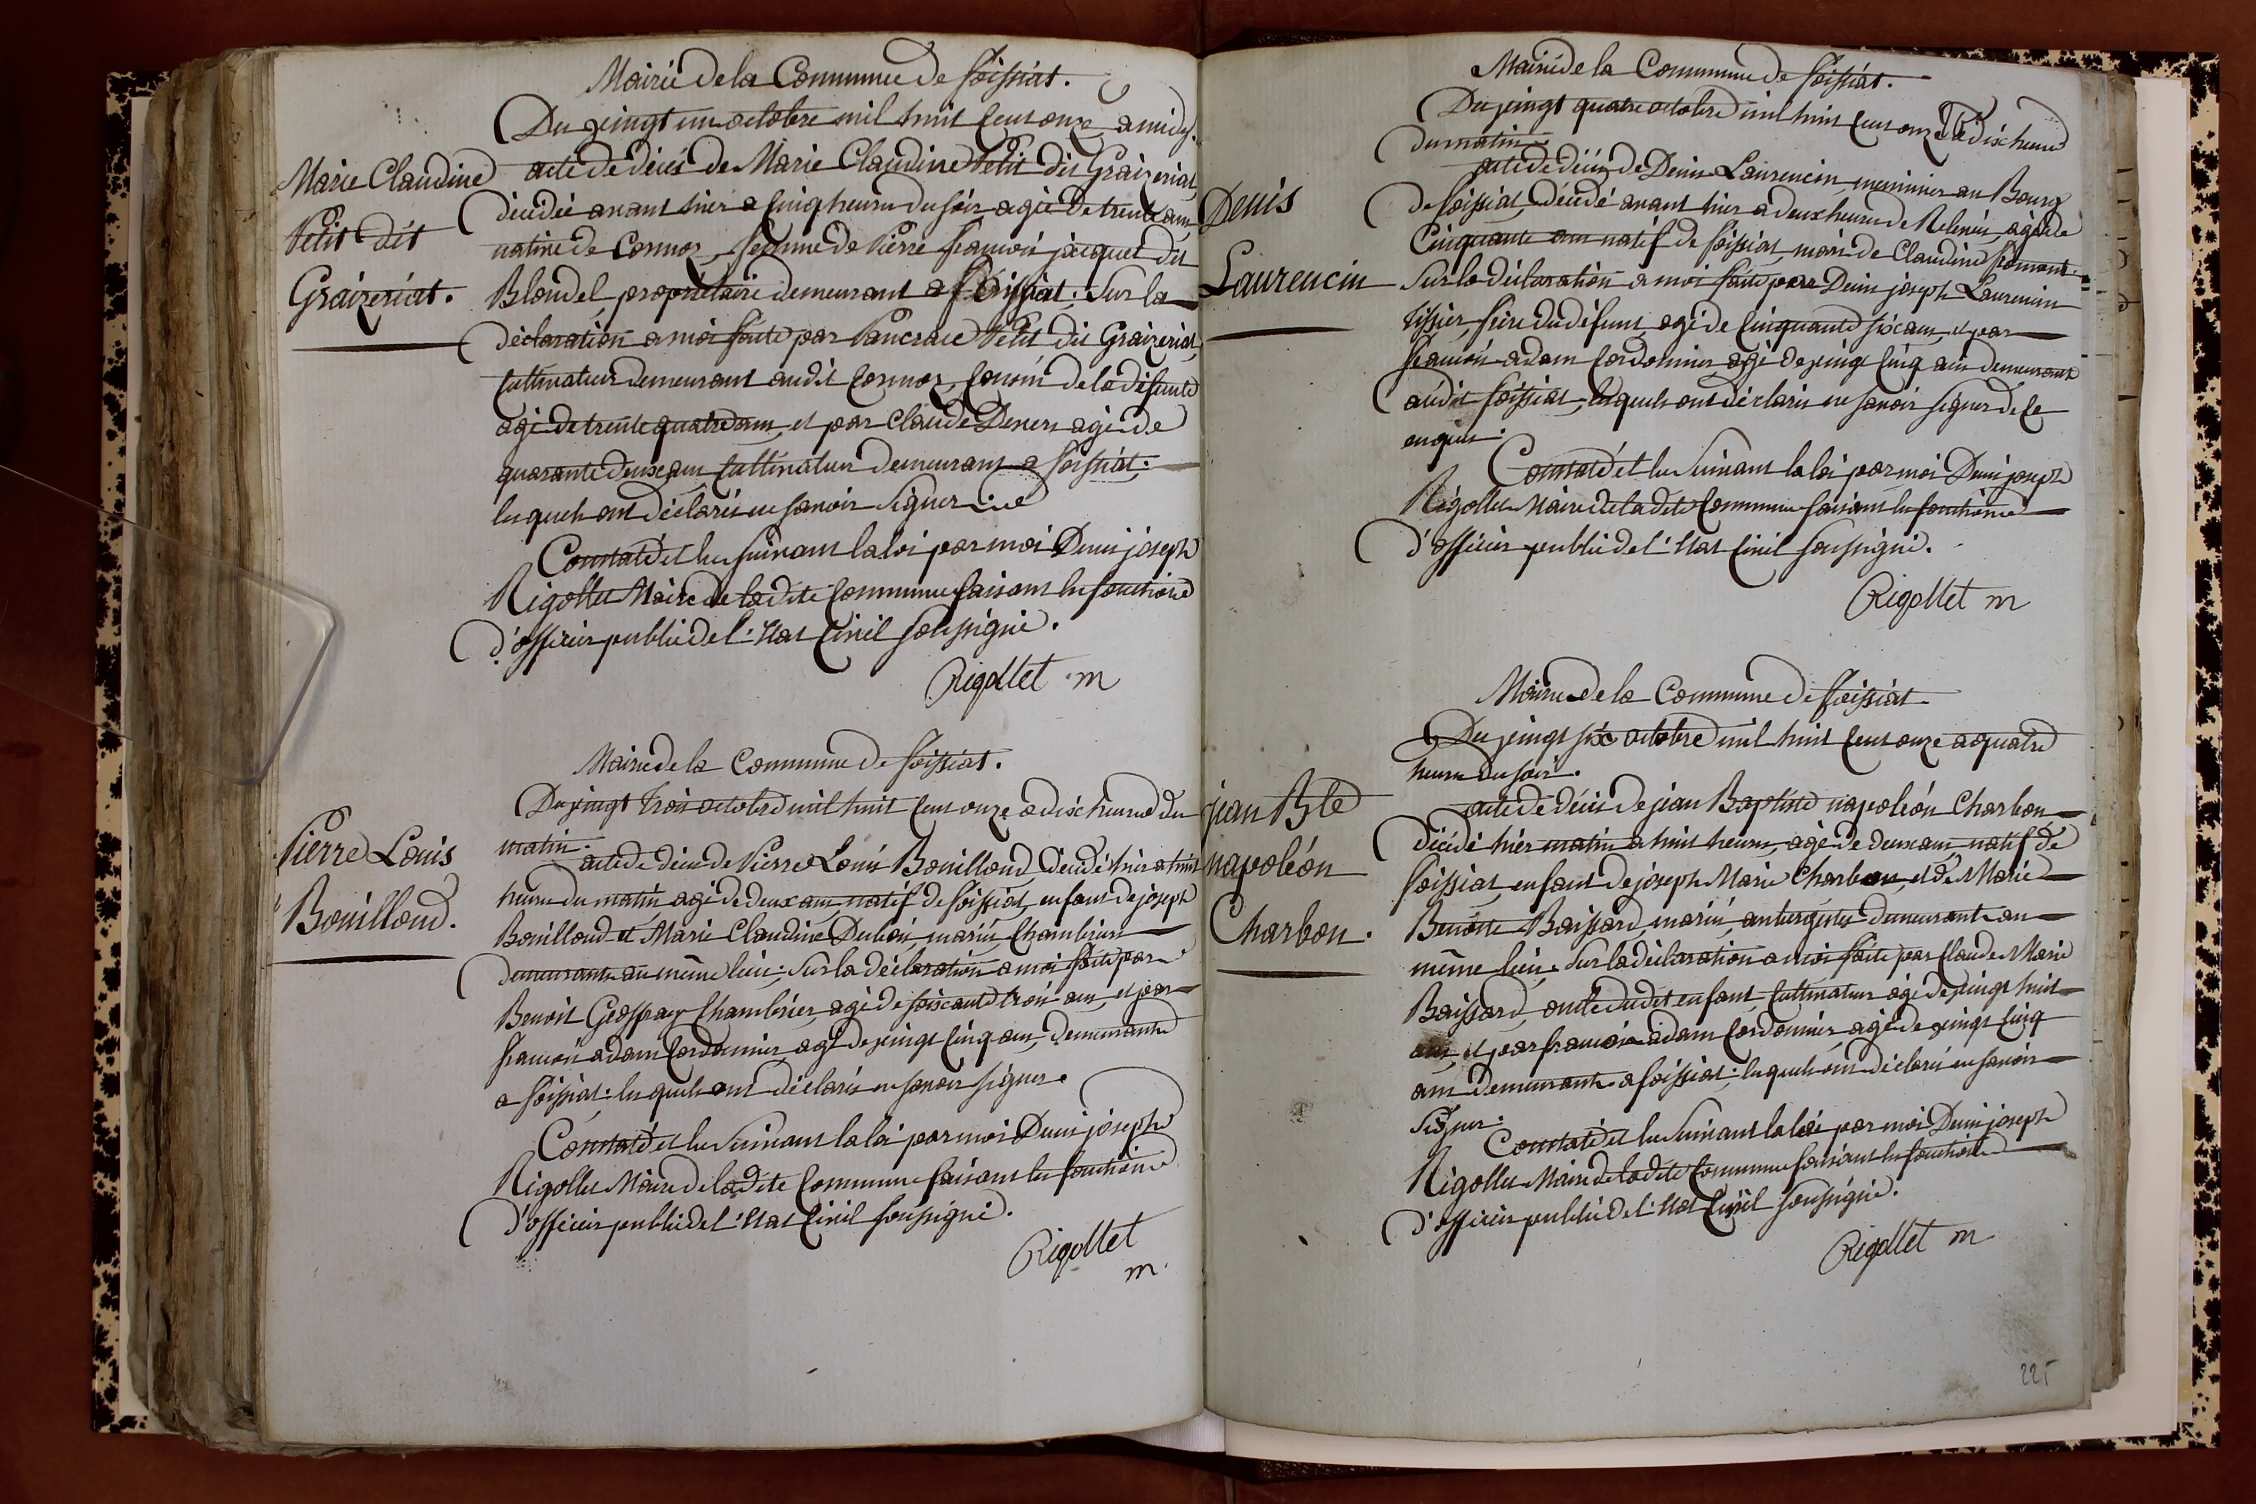 Mairie de la Commune de foissiat.
Du vingt un octobre mil huit Cent onze a midy.
Marie Claudine
Petit dit
Graizeriat.
acte de décès de Marie Claudine Petit dit Graizeriat,
décédée avant hier a Cinq heures du soir agée de trente ans
native de Cormoz, femme de Pierre françois jacquet dit
Blondel, propriétaire demeurant a foissiat. Sur la
déclaration a moi faite par Pancrace Petit dit Graizeriat,
Cultivateur demeurant audit Cormoz, Cousin de la défunte
agé de trente quatre ans, et par Claude agé de
quarante deux ans, Cultivateur demeurant a foissiat.
lesquels ont déclarés ne savoir signer
Constaté et lu Suivant la loi par moi Denis joseph
Rigollet Maire de la dite Commune faisant les fonctions
d'officier public de l'Etat Civil soussigné.
Rigollet m
Mairie de la Commune de foissiat.
Du vingt trois octobre mil huit Cent onze a dix heures du
matin.
Pierre Louis
Bouilloud.
acte de décès de Pierre Louis Bouilloud, décédé hier a huit
heures du matin, agé de deux ans, natif de foissiat, enfant de joseph
Bouilloud et Marie Claudine mariés Chambriers
demeurants au même lieu. Sur la déclaration a moi faite par
Benoit Chambrier, agé de soixante trois ans, et par
françois adam Cordonnier, agé de vingt Cinq ans, demeurants
a foissiat. lesquels ont déclarés ne savoir signer.
Constaté et lu Suivant la loi par moi Denis joseph
Rigollet Maire de la dite Commune faisant les fonctions
d'officier public de l'Etat Civil soussigné.
Rigollet
m.
Mairie de la Commune de foissiat.
Du vingt quatre octobre mil huit Cent onze a dix heures
du matin.
Denis
Laurencin
acte de décès de Denis Laurencin, meunier au Bourg
de foissiat, décédé avant hier a deux heures de Relevée, agé de
Cinquante ans natif de foissiat, mari de Claudine
Sur la déclaration a moi faite par Denis joseph Laurencin
tissier, frère du défunt, agé de Cinquante six ans, et par
françois adam Cordonnier, agé de vingt Cinq ans demeurants
audit foissiat, lesquels ont déclarés ne savoir signer de Ce
enquis.
Constaté et lu Suivant la loi par moi Denis joseph
Rigollet Maire de la dite Commune faisant les fonctions
d'officier public de l'Etat Civil soussigné.
Rigollet m
Mairie de la Commune de foissiat
Du vingt six octobre mil huit Cent onze a quatre
heures du soir.
jean Bte
napoléon
Charbon.
acte de décès de jean Baptiste napoléon Charbon
décédé hier matin a huit heures, agé de deux ans, natif de
foissiat, enfant de joseph Marie Charbon, et de Marie
Benoite Baissard, mariés, aubergistes demeurants au
même lieu. Sur la déclaration a moi faite par Claude Marie
Baissard, oncle dudit enfant, Cultivateur agé de vingt huit
ans, et par françois adam Cordonnier, agé de vingt Cinq
ans demeurants a foissiat. lesquels ont déclarés ne savoir
signer.
Constaté et lu Suivant la loi par moi Denis joseph
Rigollet Maire de la dite Commune faisant les fonctions
d'officier public de l'Etat Civil soussigné.
Rigollet m
225